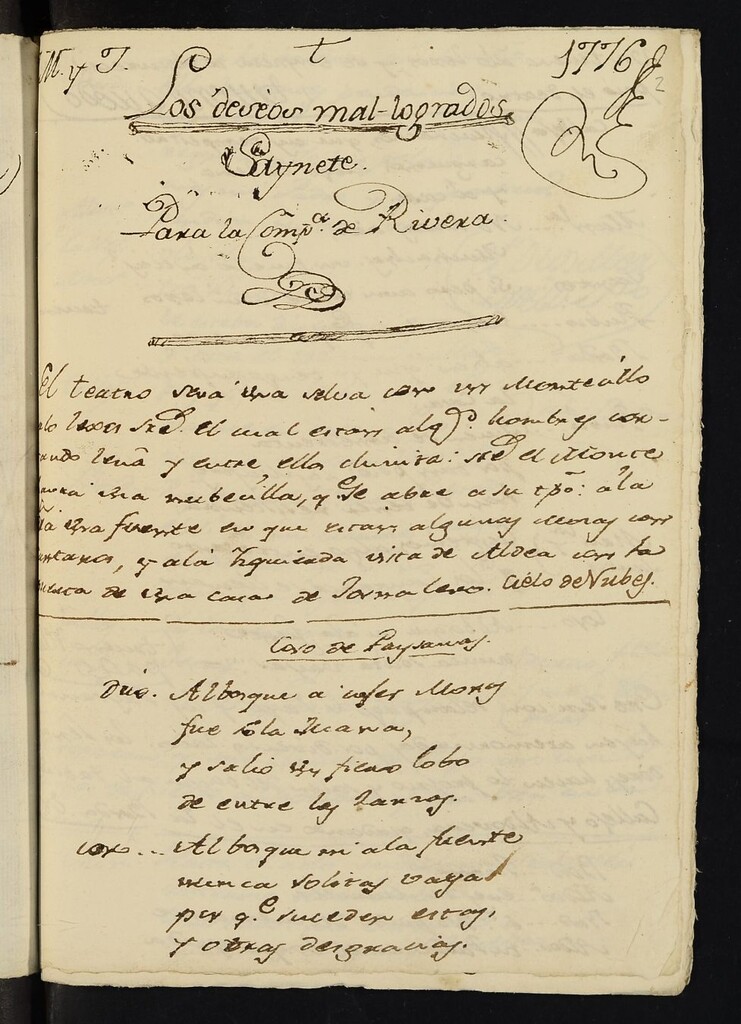 M. y J. t 1776 2
Los deseos mal-logrados
Saynete.
Para la Comp.ª de Rivera.
El teatro será una selva con un Montecillo
lo lexos sre. el cual están alg.s hombres cor-
tando leña y entre ellos chinita: sre. el Monte
havrá una nubecilla, q.e se abre a su tpō: a la
una fuente en que están algunas Mozas con
cantaros, y a la Yzquierda vista de Aldea con la
puerta de una casa de Jornalero. Cielo de Nubes.
Coro de Paysanas.
Duo. Al bosque a cojer Moras
fue sola Juana,
y salio un fiero lobo
de entre las zarzas.
cor... Al bosque ni a la fuente
nunca solitas vayan
por q.e suceden estas,
y otras desgracias.